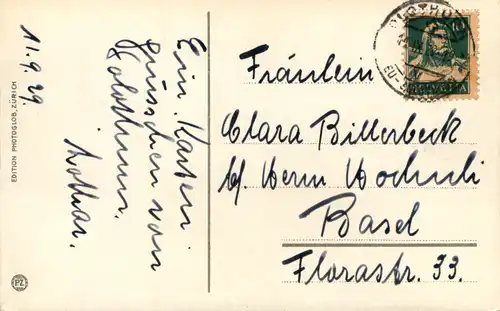 11.9.29.
Ein Karten
grüsschen von
Solothurn.
Lothar.
EDITION PHOTOGLOB, ZÜRICH
PZ
HELVETIA
Fräulein
Clara Billerbeck
b/ Herrn Hochuli
Basel
Florastr. 33.